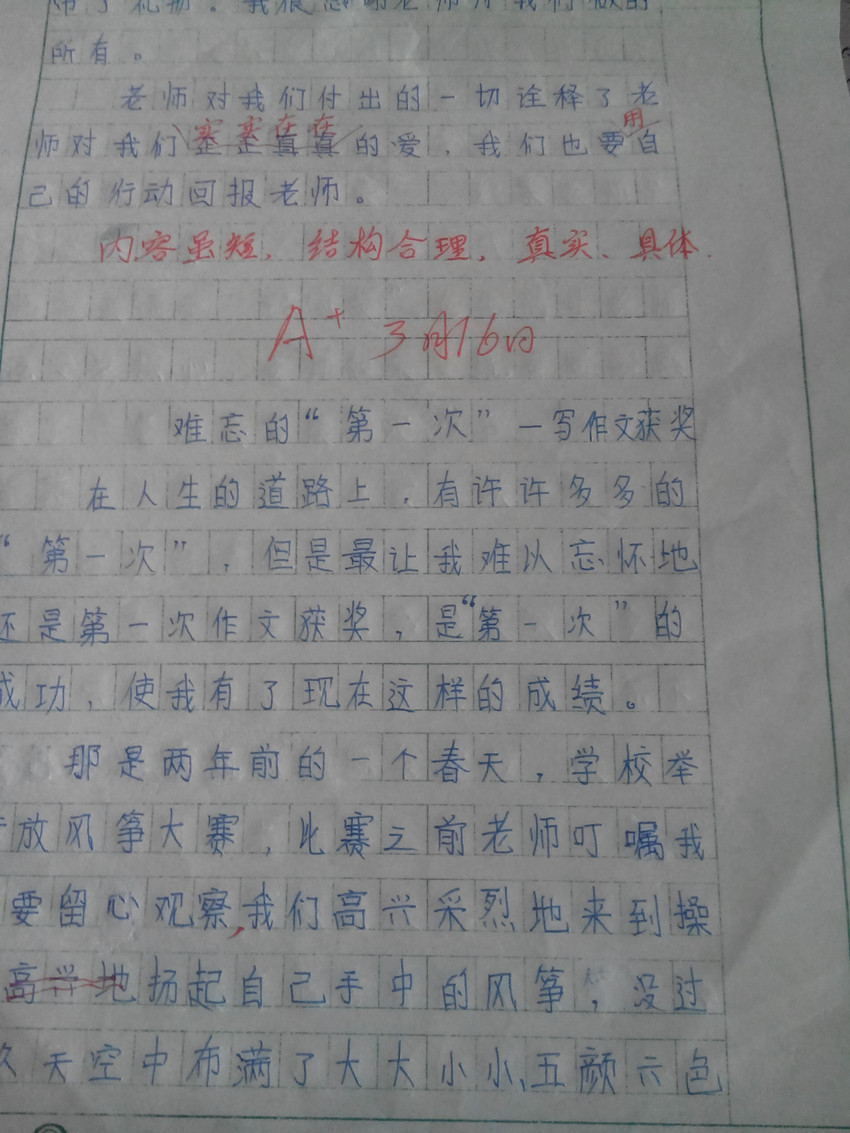 带了礼物。我很感谢老师对我们做的
所有。
老师对我们付出的一切诠释了老
实实在在 用
师对我们真真的爱,我们也要自
己的行动回报老师。
内容虽短,结构合理,真实、具体.
A+ 3月16日
难忘的“第一次”—写作文获奖
在人生的道路上,有许许多多的
“第一次”,但是最让我难以忘怀地
还是第一次作文获奖,是“第一次”的
成功,使我有了现在这样的成绩。
那是两年前的一个春天,学校举
放风筝大赛,比赛之前老师叮嘱我
要留心观察,我们高兴采烈地来到操
高兴地扬起自己手中的风筝,没过
久天空中布满了大大小小、五颜六色